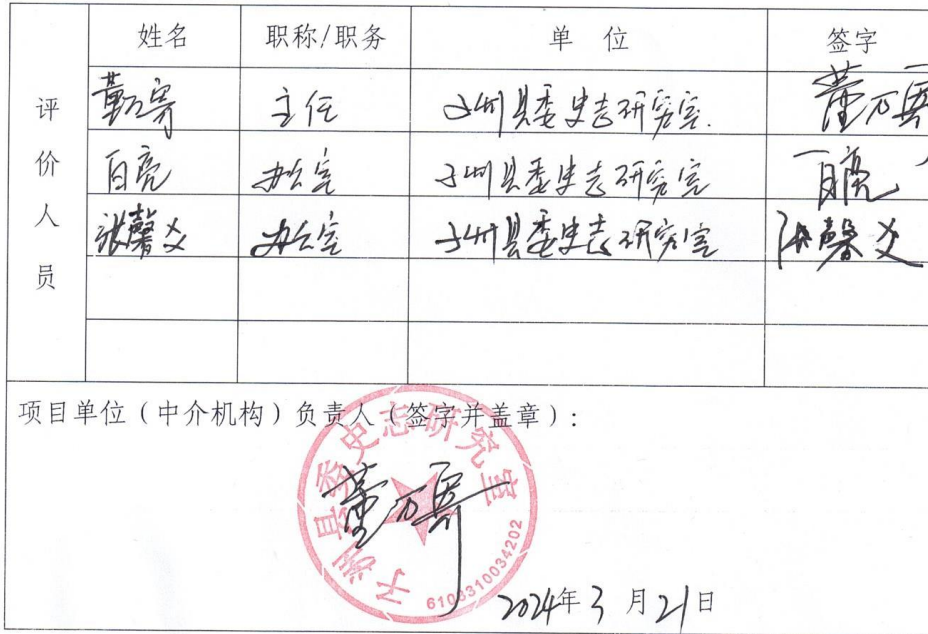 姓名 职称/职务 单 位 签字
评价人员
董万寄 主任 子洲县委史志研究室.
白亮 办公室 子洲县委史志研究室 白亮
张馨文 办公室 子洲县委史志研究室 张馨文
项目单位（中介机构）负责人（签字并盖章）：
子洲县委史志研究室
6103310034202
2024年3月21日